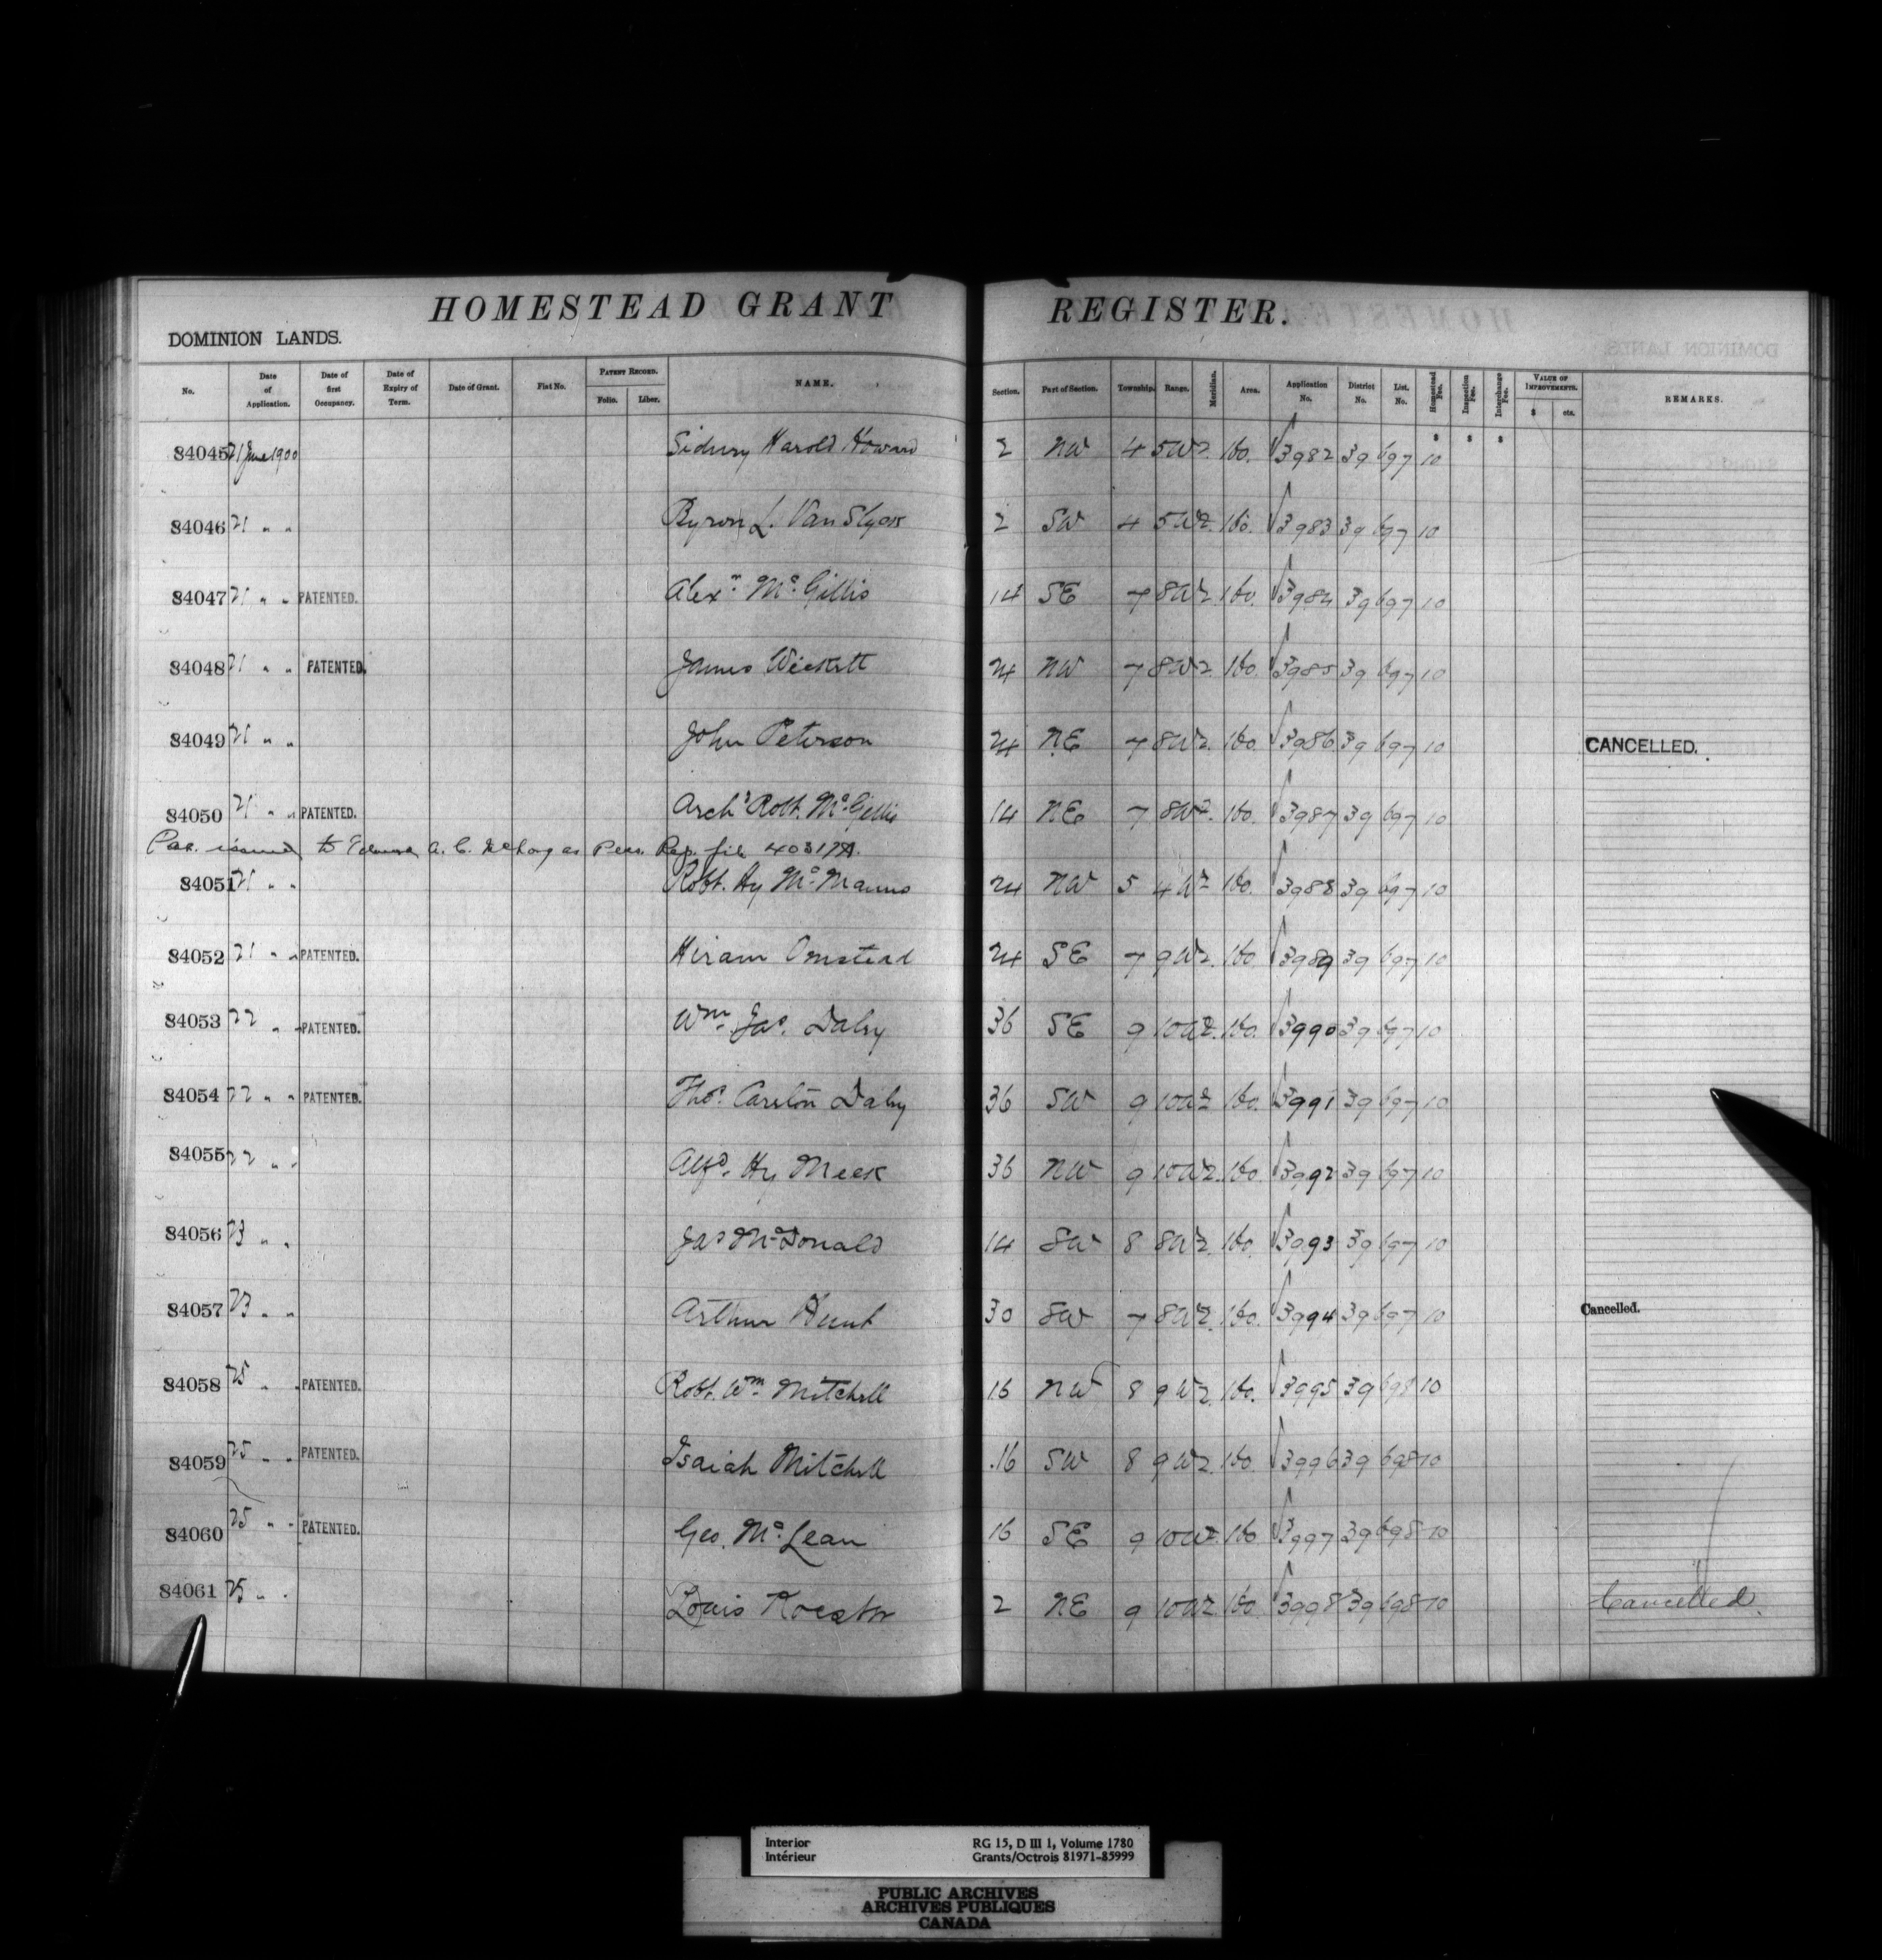 HOMESTEAD GRANT REGISTER.
DOMINION LANDS.
No. Date of Application. Date of first Occupancy. Date of Expiry of Term. Date of Grant. Fiat No. PATENT RECORD. Folio. Liber. NAME. Section. Part of Section. Township. Range. Meridian. Area. Application No. District No. List. No. Homestead Fee. Inspection Fee. Interchange Fee. VALUE OF IMPROVEMENTS. $ cts. REMARKS.
$ $ $
84045 21 June 1900 Sidney Harold Howard 2 NW 4 5 W2. 160. 3982 39 697 10
84046 21 " " Byron L. Van Slyck 2 SW 4 5 W2. 160. 3983 39 697 10
84047 21 " " PATENTED. Alexr. Mc.Gillis 14 SE 7 8 W2 160. 3984 39 697 10
84048 21 " " PATENTED. James Wickett 24 NW 7 8 W2. 160. 3985 39 697 10
84049 21 " " John Peterson 24 NE 7 8 W2. 160. 3986 39 697 10 CANCELLED.
84050 21 " " PATENTED. Archd Robt. Mc.Gillis 14 NE 7 8 W2. 160. 3987 39 697 10
Pat. issued to A. C. as Pers. Rep. file
84051 21 " " Robt. Hy McManus 24 NW 5 4 W2 160. 3988 39 697 10
84052 21 " " PATENTED. Hiram Omstead 24 SE 7 9 W2. 160. 3989 39 697 10
84053 22 " " PATENTED. Wm. Jas. Daby 36 SE 9 10 W2. 160. 3990 39 697 10
84054 22 " " PATENTED. Thos. Carlton Daby 36 SW 9 10 W2 160. 3991 39 697 10
84055 22 " " Alfd. Hy Meek 36 NW 9 10 W2. 160. 3992 39 697 10
84056 23 " " Jas McDonald 14 SW 8 8 W2. 160. 3993 39 697 10
84057 23 " " Arthur Hunt 30 SW 7 8 W2. 160. 3994 39 697 10 Cancelled.
84058 25 " " PATENTED. Robt. Wm. Mitchell 16 NW 8 9 W2. 160. 3995 39 698 10
84059 25 " " PATENTED. Isaiah Mitchell 16 SW 8 9 W2. 160. 3996 39 698 10
84060 25 " " PATENTED. Geo. Mc.Lean 16 SE 9 10 W2. 160 3997 39 698 10
84061 25 " " Louis Koester 2 NE 9 10 W2 160. 3998 39 698 10 Cancelled.
Interior RG 15, D III 1, Volume 1780
Intérieur Grants/Octrois 81971-85999
PUBLIC ARCHIVES
ARCHIVES PUBLIQUES
CANADA